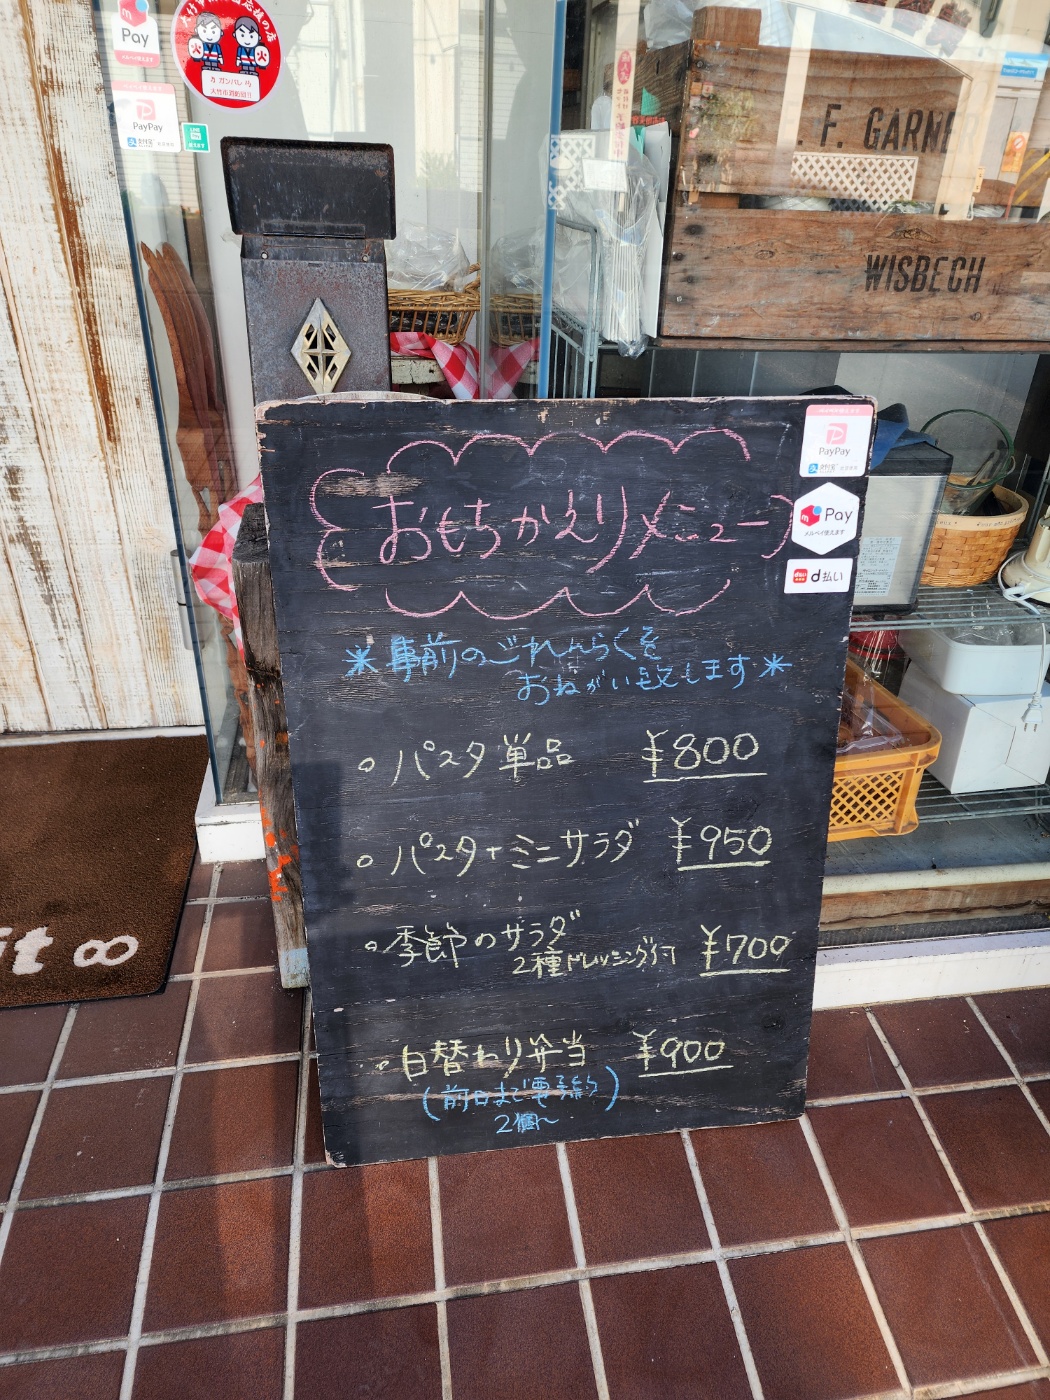 Pay
メルペイ使えます
PayPay
火
火
ガンバレ
大竹市消防団!!
F. GARNE
WISBECH
PayPay
Pay
メルペイ使えます
d払い
おもちかえりメニュー
*事前のごれんらくを
おねがい致します*
。パスタ単品 ¥800
。パスタ+ミニサラダ ¥950
。季節のサラダ
2種ドレッシング付 ¥700
。日替わり弁当 ¥900
(前日まで要予約)
2個〜
it ∞